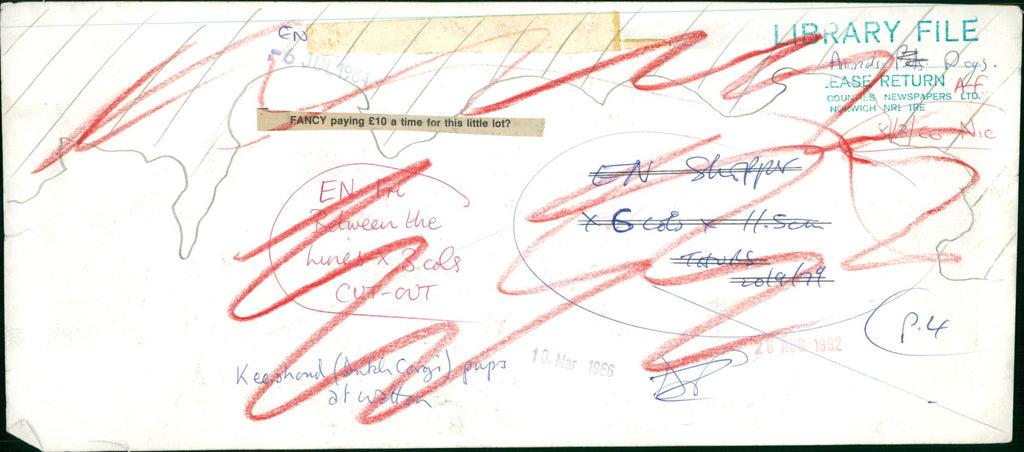 EN
-6 JUL 1984
LIBRARY FILE
Animals: Pets. Dogs.
LEASE RETURN A-F
COUNTIES NEWSPAPERS LTD.
NORWICH NR1 1RE
Nic
FANCY paying £10 a time for this little lot?
EN Fri
Between the
Lines x 3 cols
CUT-OUT
EN Shopper
x 6 cols x 11.5cm
THURS
20/9/79
P.4
Keeshond (Dutch Corgi) pups
at Watton
10. Mar 1966
26 AUG 1992